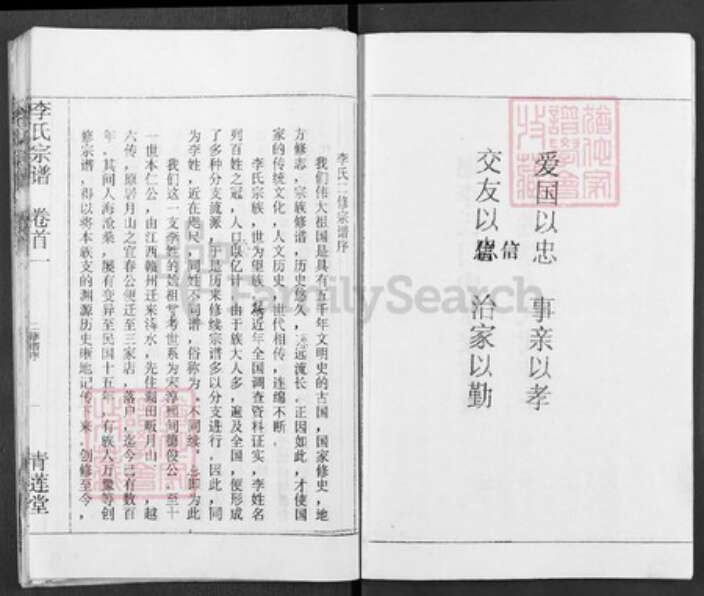 爱国以忠 事亲以孝
交友以信 治家以勤
李氏二修宗谱序
我们伟大祖国是具有五千年文明史的古国，国家修史，地
方修志，宗族修谱，历史悠久，源远流长。正因如此，才使国
家的传统文化，人文历史，世代相传，连绵不断。
李氏宗族，世为望族，据近年全国调查资料证实，李姓名
列百姓之冠，人口以亿计，由于族大人多，遍及全国，便形成
了多种分支流派，于是历来修续宗谱多以分支进行。因此，同
为李姓，近在咫尺，同姓不同谱，俗称为，不同续，即为此
我们这一支李姓的始祖，考世系为宋淳熙间德俊公，至十
一世本仁公，由江西赣州迁来浠水，先住蜀田畈月山，越
六传，原碧月山之宜春公便迁至三家店，落户，迄今已有数百
年，其间人海沧桑，屡有变异至民国十五年，有族人万夔等创
修宗谱，得以将本族支的渊源历史晰地记传下来。创修至今，
李氏宗谱 卷首一
二修谱序
青莲堂
FamilySearch